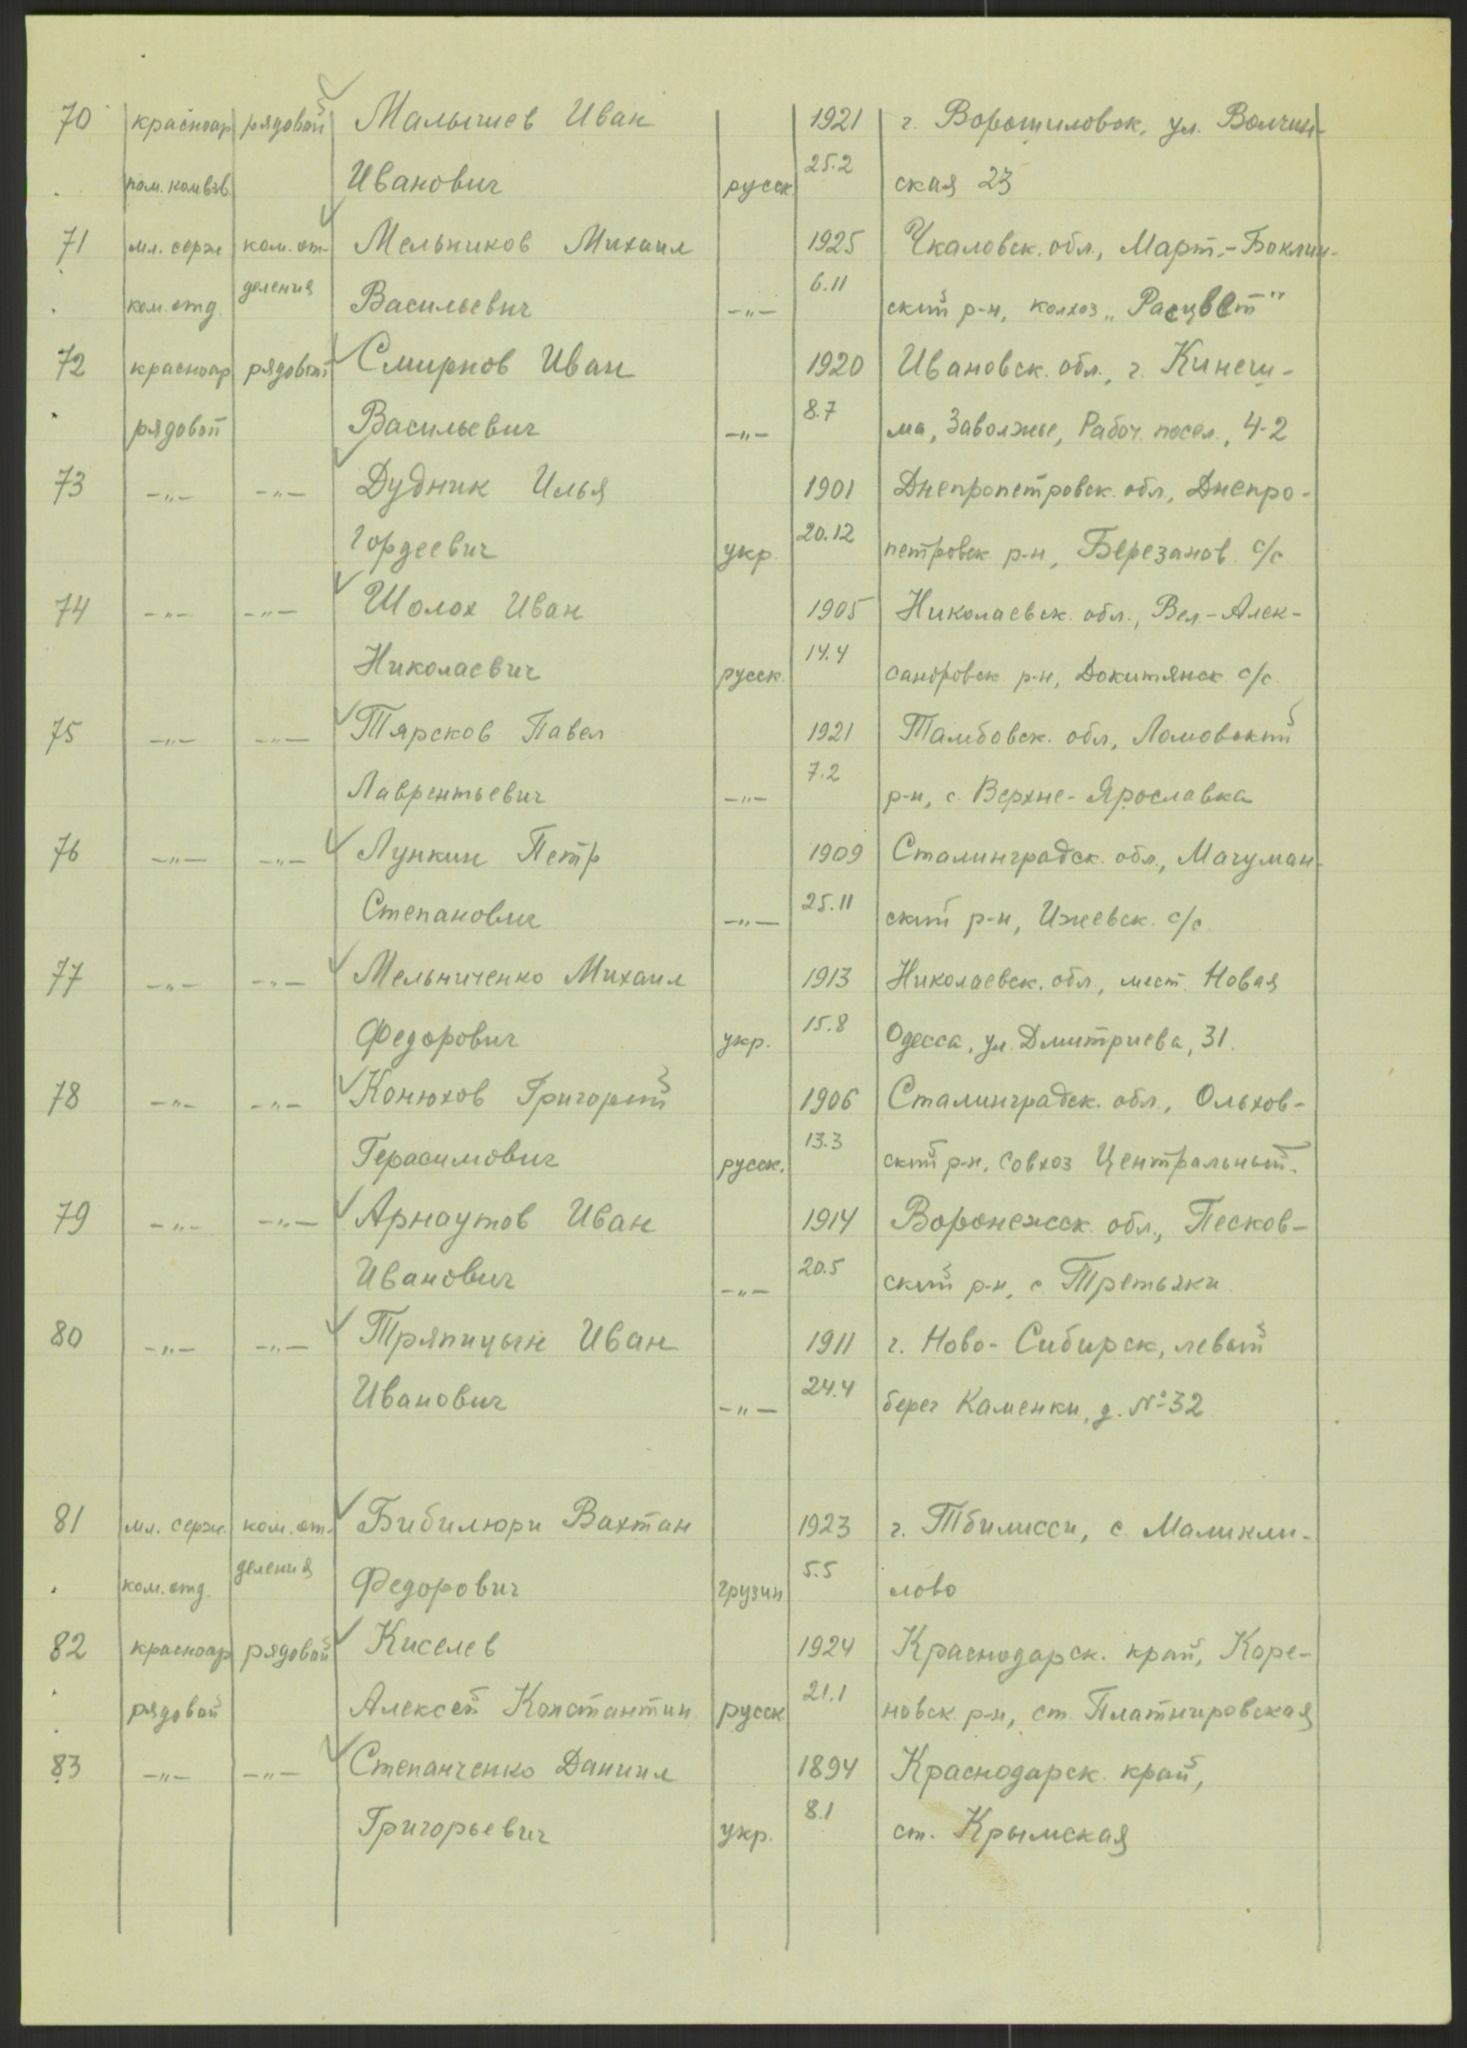 70 красноар рядовой Малышев Иван 1921 г. Ворошиловск, ул. Волчин-
пом. комвзв Иванович русск. 25.2 ская 23
71 мл. серж ком. от- Мельников Михаил 1925 Чкаловск. обл., Март.-Боклин-
ком. отд. деления Васильевич -"- 6.11 ский р-н, колхоз „Расцвет"
72 красноар рядовой Смирнов Иван 1920 Ивановск. обл., г. Кинеш-
рядовой Васильевич -"- 8.7 ма, Заволжье, Рабоч. посел., 4-2
73 -"- -"- Дудник Илья 1901 Днепропетровск. обл., Днепро-
Гордеевич укр. 20.12 петровск р-н, Березанов. с/с
74 -"- -"- Шолох Иван 1905 Николаевск. обл., Вел.-Алек-
Николаевич русск. 14.4 сандровск р-н, Докитянск с/с.
75 -"- -"- Тярсков Павел 1921 Тамбовск. обл, Ломовский
Лаврентьевич -"- 7.2 р-н, с. Верхне-Ярославка
76 -"- -"- Лункин Петр 1909 Сталинградск. обл., Мачуман-
Степанович -"- 25.11 ский р-н, Ижевск. с/с
77 -"- -"- Мельниченко Михаил 1913 Николаевск. обл, мест. Новая
Федорович укр. 15.8 Одесса, ул. Дмитриева, 31.
78 -"- -"- Конюхов Григорий 1906 Сталинградск. обл., Ольхов-
Герасимович русск. 13.3 ский р-н, совхоз Центральный.
79 -"- -"- Арнаутов Иван 1914 Воронежск. обл., Песков-
Иванович -"- 20.5 ский р-н, с Третьяки
80 -"- -"- Тряпицын Иван 1911 г. Ново-Сибирск, левый
Иванович -"- 24.4 берег Каменки, д. № 32
81 мл. серж. ком. от- Бибилюри Вахтан 1923 г. Тбилисси, с. Маликли-
ком. отд. деления Федорович грузин 5.5 лово
82 красноар рядовой Киселев 1924 Краснодарск. край, Коре-
рядовой Алексей Константин русск 21.1 новск р-н, ст. Платнировская
83 -"- -"- Степанченко Даниил 1894 Краснодарск. край,
Григорьевич укр. 8.1 ст. Крымская